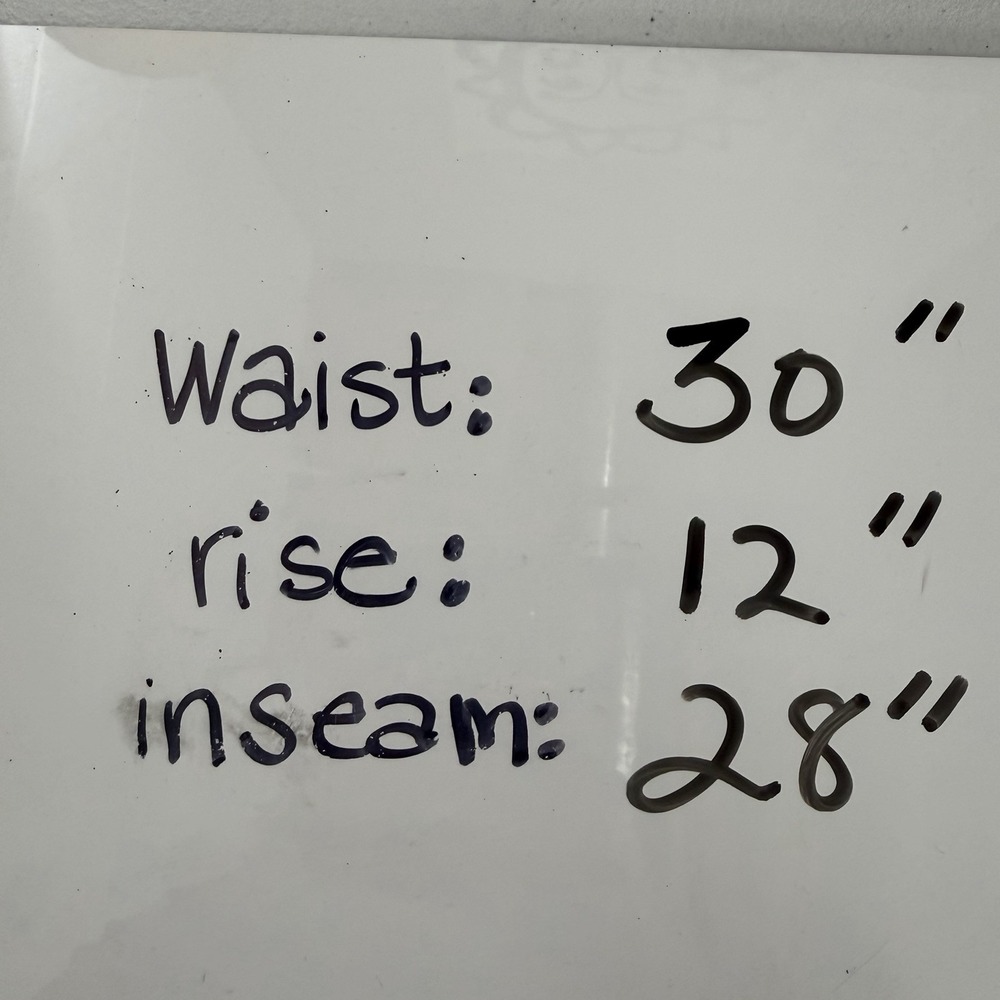 Waist: 30"
rise: 12"
inseam: 28"